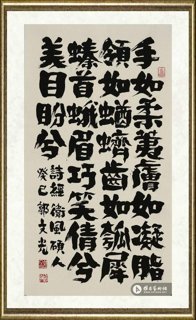 手如柔荑膚如凝脂
領如蝤蠐齒如瓠犀
螓首蛾眉巧笑倩兮
美目盼兮
詩經衛風碩人
癸巳郭文光